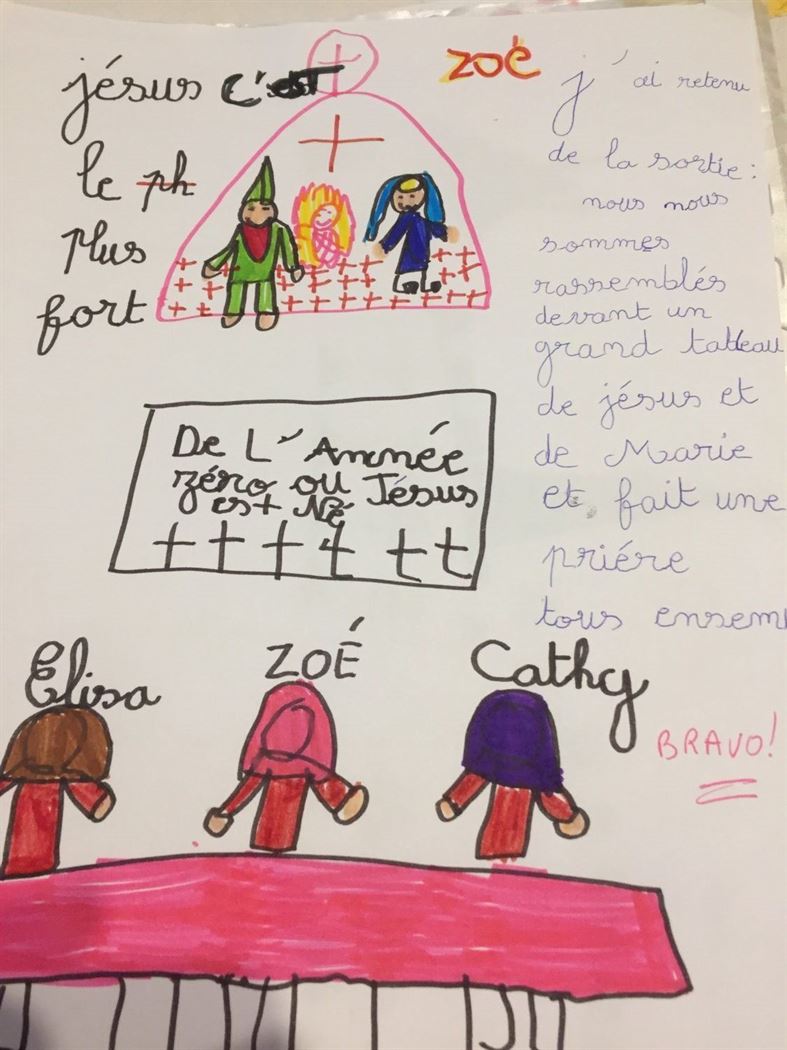 jésus c'est
le ph
plus
fort
zoé
j'ai retenu
de la sortie :
nous nous
sommes
rassemblés
devant un
grand tableau
de jésus et
de Marie
et fait une
priére
tous ensem
De L'Année
zéro ou Jésus
est Né
Elisa
ZOÉ
Cathy
BRAVO!